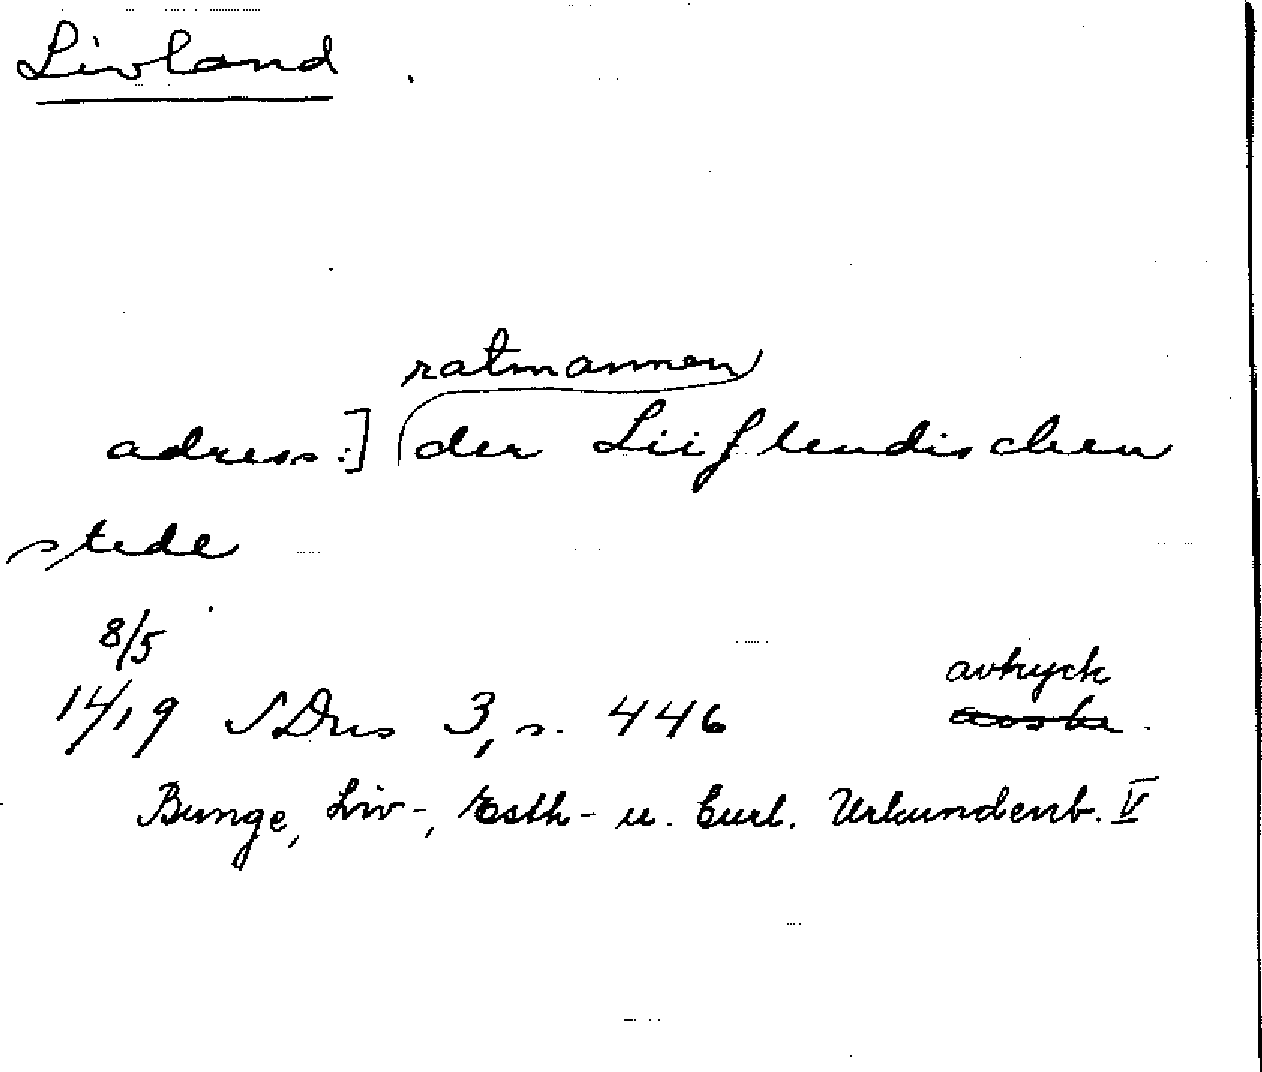 Livland
ratmannen
adress.] der Liiflendischen
stede
8/5
1419 SDns 3, s. 446 avtryck
Bunge, Liv-, Esth- u. Curl. Urkundenb. V